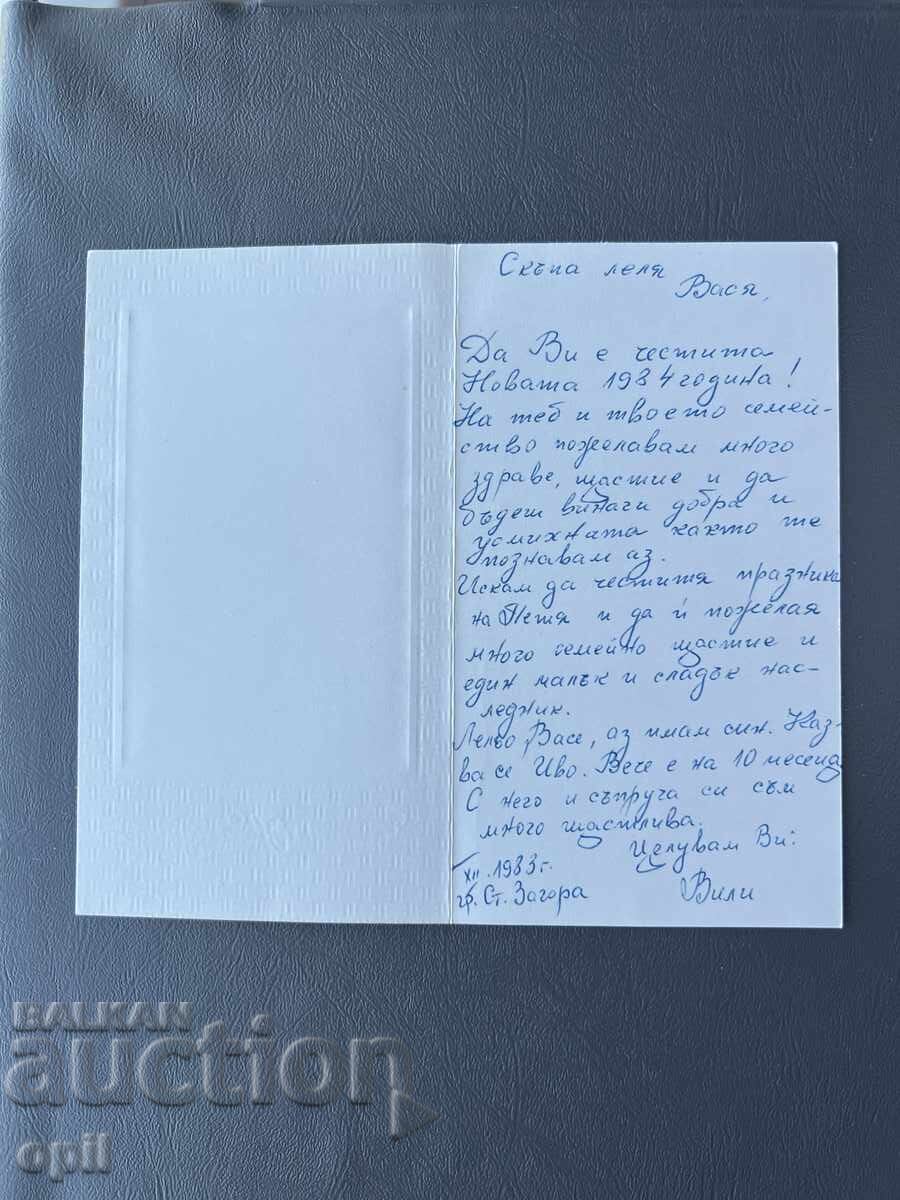 Скъпа леля
Вася,
Да Ви е честита
Новата 1984 година!
На теб и твоето семей-
ство пожелавам много
здраве, щастие и да
бъдеш винаги добра и
усмихната както те
познавам аз.
Искам да честитя празника
на Петя и да ѝ пожелая
много семейно щастие и
един малък и сладък нас-
ледник.
Лельо Васе, аз имам син. Каз-
ва се Иво. Вече е на 10 месеца
С него и съпруга си съм
много щастлива.
Целувам Ви:
XII.1983г.
гр. Ст. Загора
Вили
BALKAN
auction
opil